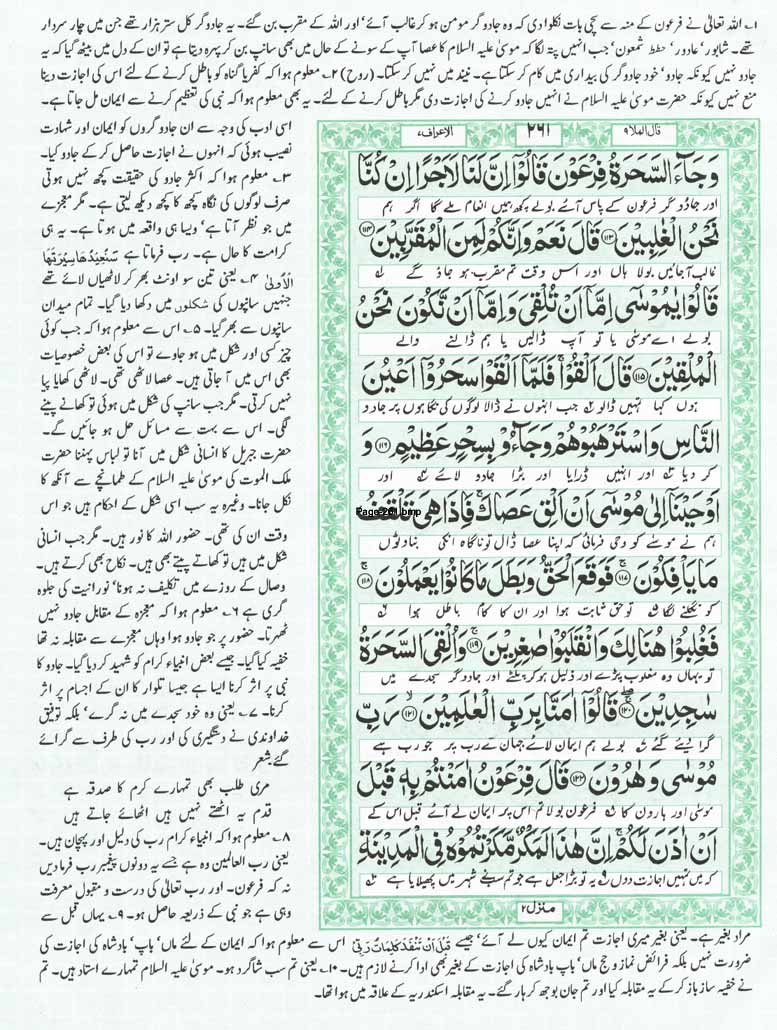 ۱؎ اللہ تعالیٰ نے فرعون کے منہ سے سچی بات نکلوا دی کہ وہ جادوگر مومن ہو کر غالب آئے' اور اللہ کے مقرب بن گئے۔ یہ جادوگر کل ستر ہزار تھے جن میں چار سردار
تھے۔ شاپور' عادور' حطط' شمعون' جب انہیں پتہ لگا کہ موسیٰ علیہ السلام کا عصا آپ کے سونے کے حال میں بھی سانپ بن کر پہرہ دیتا ہے تو ان کے دل میں بیٹھ گیا کہ یہ
جادو نہیں کیونکہ جادو' خود جادوگر کی بیداری میں کام کر سکتا ہے۔ نیند میں نہیں کر سکتا۔ (روح) ۲؎ معلوم ہوا کہ کفر یا گناہ کو باطل کرنے کے لئے اس کی اجازت دینا
منع نہیں کیونکہ حضرت موسیٰ علیہ السلام نے انہیں جادو کرنے کی اجازت دی مگر باطل کرنے کے لئے۔ یہ بھی معلوم ہوا کہ نبی کی تعظیم کرنے سے ایمان مل جاتا ہے۔
اسی ادب کی وجہ سے ان جادوگروں کو ایمان اور شہادت
نصیب ہوئی کہ انہوں نے اجازت حاصل کر کے جادو کیا۔
۳؎ معلوم ہوا کہ اکثر جادو کی حقیقت کچھ نہیں ہوتی
صرف لوگوں کی نگاہ کچھ کا کچھ دیکھ لیتی ہے۔ مگر معجزے
میں جو نظر آتا ہے' ویسا ہی واقعہ میں ہوتا ہے۔ یہ ہی
کرامت کا حال ہے۔ رب فرماتا ہے سَنُعِيْدُهَا سِيْرَتَهَا
الْاُوْلٰى ۴؎ یعنی تین سو اونٹ بھر کر لاٹھیاں لائے تھے
جنہیں سانپوں کی شکلوں میں دکھا دیا گیا۔ تمام میدان
سانپوں سے بھر گیا۔ ۵؎ اس سے معلوم ہوا کہ جب کوئی
چیز کسی اور شکل میں ہو جاوے تو اس کی بعض خصوصیات
بھی اس میں آ جاتی ہیں۔ عصا لاٹھی تھی۔ لاٹھی کھایا پیا
نہیں کرتی۔ مگر جب سانپ کی شکل میں ہوئی تو کھانے پینے
لگی۔ اس سے بہت سے مسائل حل ہو جائیں گے۔
حضرت جبریل کا انسانی شکل میں آنا تو لباس پہننا حضرت
ملک الموت کی موسیٰ علیہ السلام کے طمانچے سے آنکھ کا
نکل جانا۔ وغیرہ یہ سب اسی شکل کے احکام ہیں جو اس
وقت ان کی تھی۔ حضور اللہ کا نور ہیں۔ مگر جب انسانی
شکل میں ہیں تو کھاتے پیتے بھی ہیں۔ نکاح بھی کرتے ہیں۔
وصال کے روزے میں تکلیف نہ ہونا' نورانیت کی جلوہ
گری ہے ۶؎ معلوم ہوا کہ معجزہ کے مقابل جادو نہیں
ٹھہرتا۔ حضور پر جو جادو ہوا وہاں معجزے سے مقابلہ نہ تھا
خفیہ کیا گیا۔ جیسے بعض انبیاء کرام کو شہید کر دیا گیا۔ جادو کا
نبی پر اثر کرنا ایسا ہے جیسا تلوار کا ان کے اجسام پر اثر
کرنا۔ ۷؎ یعنی وہ خود سجدے میں نہ گرے' بلکہ توفیق
خداوندی نے دستگیری کی اور رب کی طرف سے گرائے
گئے شعر
مری طلب بھی تمہارے کرم کا صدقہ ہے
قدم یہ اٹھتے نہیں ہیں اٹھائے جاتے ہیں
۸؎ معلوم ہوا کہ انبیاء کرام رب کی دلیل اور پہچان ہیں۔
یعنی رب العالمین وہ ہے جسے یہ دونوں پیغمبر رب فرمادیں
نہ کہ فرعون۔ اور رب تعالیٰ کی درست و مقبول معرفت
وہی ہے جو نبی کے ذریعہ حاصل ہو۔ ۹؎ یہاں قبل سے
قال الملا ۹ ۲۶۱ الاعراف ۷
وَجَآءَ السَّحَرَةُ فِرْعَوْنَ قَالُوْٓا اِنَّ لَنَا لَاَجْرًا اِنْ كُنَّا
اور جادوگر فرعون کے پاس آئے بولے کچھ ہمیں انعام ملے گا اگر ہم
نَحْنُ الْغٰلِبِيْنَ ۝۱۱۳ قَالَ نَعَمْ وَاِنَّكُمْ لَمِنَ الْمُقَرَّبِيْنَ ۝۱۱۴
غالب آجائیں بولا ہاں اور اس وقت تم مقرب ہو جاؤ گے ۱
قَالُوْا يٰمُوْسٰٓى اِمَّآ اَنْ تُلْقِيَ وَاِمَّآ اَنْ نَّكُوْنَ نَحْنُ
بولے اے موسیٰ یا تو آپ ڈالیں یا ہم ڈالنے والے
الْمُلْقِيْنَ ۝۱۱۵ قَالَ اَلْقُوْا ۚ فَلَمَّآ اَلْقَوْا سَحَرُوْٓا اَعْيُنَ
ہوں کہا تمہیں ڈالو ۲ جب انہوں نے ڈالا لوگوں کی نگاہوں پر جادو
النَّاسِ وَاسْتَرْهَبُوْهُمْ وَجَآءُوْ بِسِحْرٍ عَظِيْمٍ ۝۱۱۶ وَ
کر دیا ۳ اور انہیں ڈرایا اور بڑا جادو لائے ۴ اور
اَوْحَيْنَآ اِلٰى مُوْسٰٓى اَنْ اَلْقِ عَصَاكَ ۚ فَاِذَا هِيَ تَلْقَفُ
Page-261.bmp
ہم نے موسیٰ کو وحی فرمائی کہ اپنا عصا ڈال تو ناگاہ انکی بناوٹوں
مَا يَاْفِكُوْنَ ۝۱۱۷ فَوَقَعَ الْحَقُّ وَبَطَلَ مَا كَانُوْا يَعْمَلُوْنَ ۝۱۱۸
کو نگلنے لگا ۵ تو حق ثابت ہوا اور ان کا کام باطل ہوا ۶
فَغُلِبُوْا هُنَالِكَ وَانْقَلَبُوْا صٰغِرِيْنَ ۝۱۱۹ وَاُلْقِيَ السَّحَرَةُ
تو یہاں وہ مغلوب پڑے اور ذلیل ہو کر پلٹے اور جادوگر سجدے میں
سٰجِدِيْنَ ۝۱۲۰ قَالُوْٓا اٰمَنَّا بِرَبِّ الْعٰلَمِيْنَ ۝۱۲۱ رَبِّ
گرا دیئے گئے ۷ بولے ہم ایمان لائے جہان کے رب پر جو رب ہے
مُوْسٰى وَهٰرُوْنَ ۝۱۲۲ قَالَ فِرْعَوْنُ اٰمَنْتُمْ بِهٖ قَبْلَ
موسیٰ اور ہارون کا ۸ فرعون بولا تم اس پر ایمان لے آئے قبل اس کے
اَنْ اٰذَنَ لَكُمْ ۚ اِنَّ هٰذَا لَمَكْرٌ مَّكَرْتُمُوْهُ فِي الْمَدِيْنَةِ
کہ میں تمہیں اجازت دوں ۹ یہ تو بڑا جعل ہے جو تم سبنے شہر میں پھیلایا ہے ۱۰
منزل ۲
مراد بغیر ہے۔ یعنی بغیر میری اجازت تم ایمان کیوں لے آئے' جیسے قَبْلَ اَنْ تَنْفَدَ كَلِمَاتُ رَبِّيْ اس سے معلوم ہوا کہ ایمان کے لئے ماں' باپ' بادشاہ کی اجازت کی
ضرورت نہیں بلکہ فرائض نماز و حج ماں' باپ بادشاہ کی اجازت کے بغیر بھی ادا کرنے لازم ہیں۔ ۱۰؎ یعنی تم سب شاگرد ہو۔ موسیٰ علیہ السلام تمہارے استاد ہیں۔ تم
نے خفیہ ساز باز کر کے یہ مقابلہ کیا اور تم جان بوجھ کر ہار گئے۔ یہ مقابلہ اسکندریہ کے علاقہ میں ہوا تھا۔